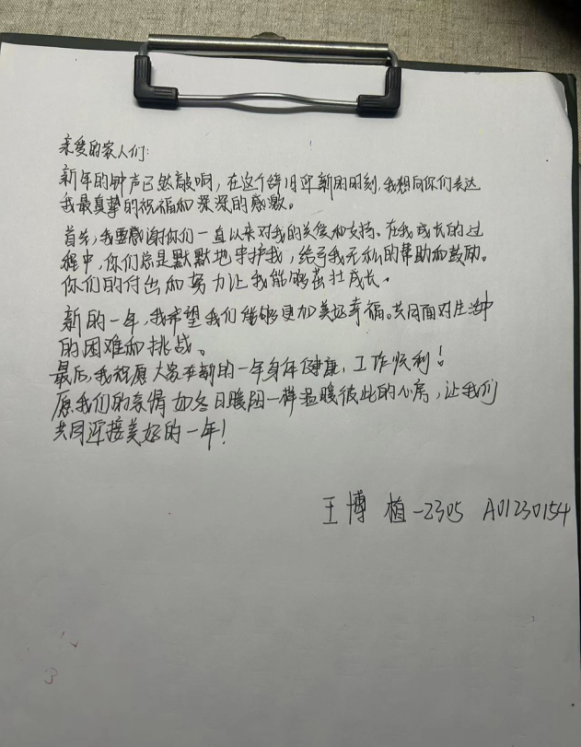 亲爱的家人们:
新年的钟声已然敲响，在这个辞旧迎新的时刻，我想向你们表达
我最真挚的祝福和深深的感激。
首先，我要感谢你们一直以来对我的关爱和支持。在我成长的过
程中，你们总是默默地守护我，给予我无私的帮助和鼓励。
你们的付出和努力让我能够茁壮成长。
新的一年，我希望我们能够更加美运幸福。共同面对生活中
的困难和挑战。
最后，我祝愿大家在新的一年身体健康，工作顺利！
愿我们的亲情如冬日暖阳一样温暖彼此的心房，让我们
共同迎接美好的一年！
王博 植-2305 A01230154
3